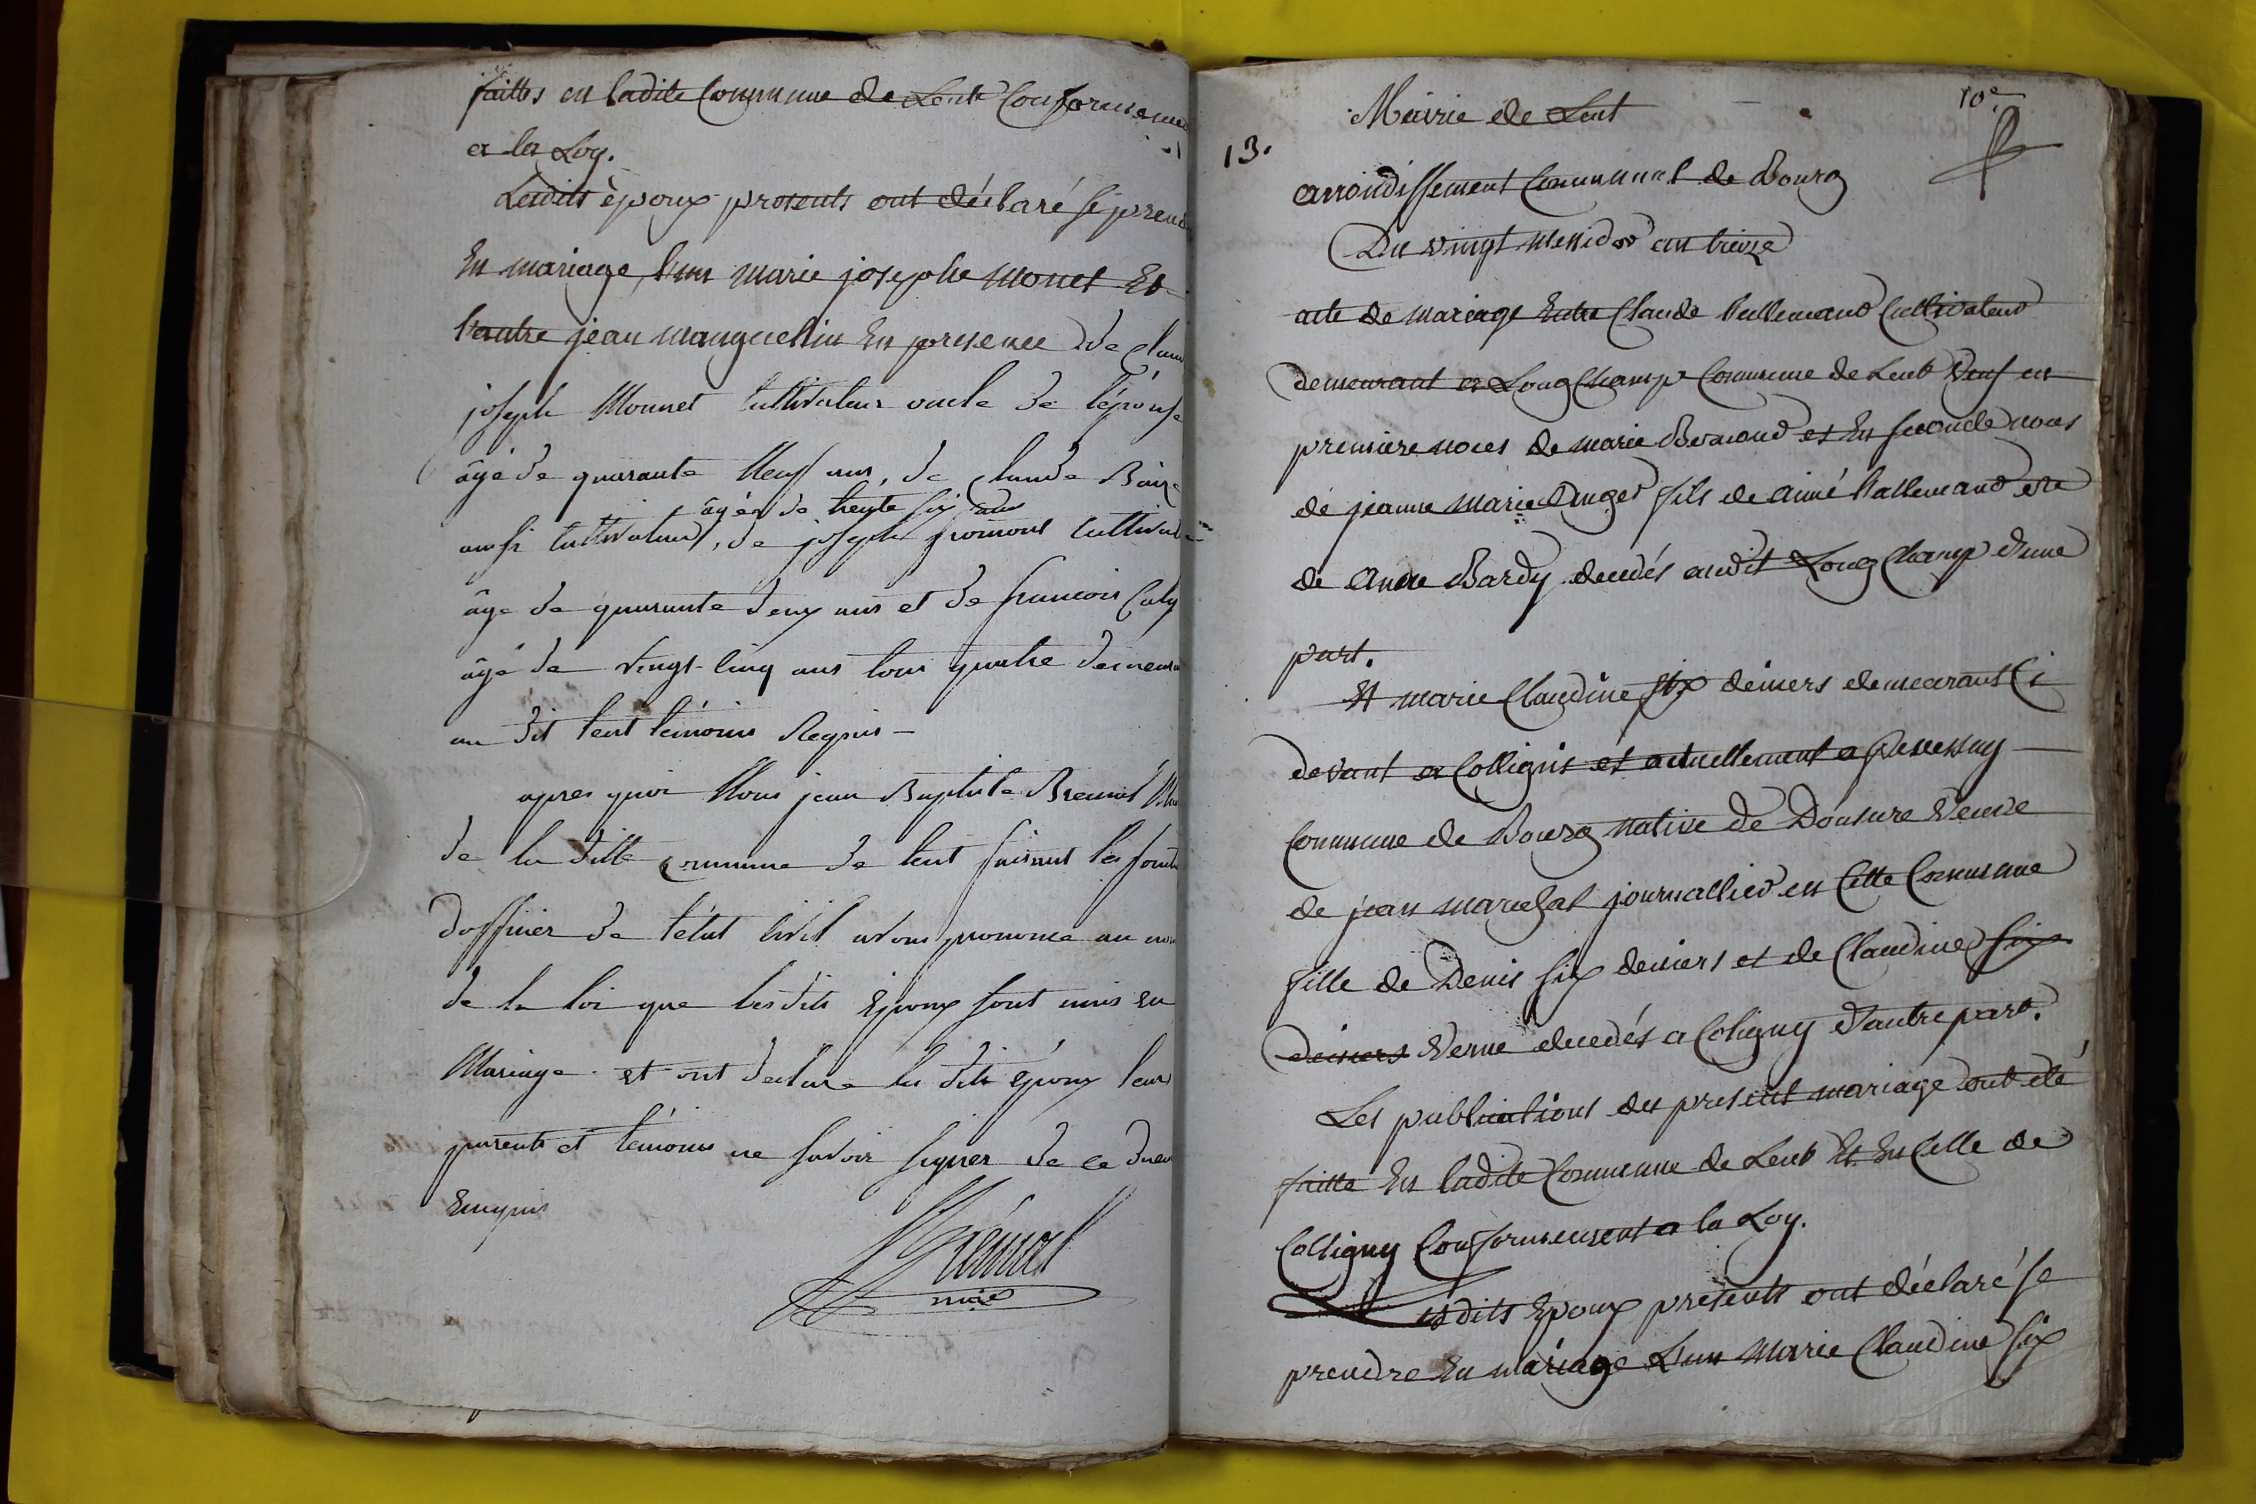 faittes en ladite Commune de Lent Conformeme
a la Loy.
Lesdits époux presents ont déclaré se prend
En mariage, l'un marie josephe Monet Et
l'autre jean manguelin En presence de
joseph Monnet Cultivateur oncle de l'épouse
âgé de quarante Neuf ans, de Claude
âgér de trente six ans
aussi Cultivateur, de joseph fromont Cultivat
âge de quarante deux ans et de francois
âgé de vingt-Cinq ans tous quatre demeur
au dit lent témoins Requis —
apres quoi Nous jean Baptiste Bremod
de la ditte commune de lent faisant les foncti
d'officier de l'état Civil avons prononcé au nom
de la loi que lesdits Epoux sont unis en
Mariage. et ont declare les dits époux leurs
parents et témoins ne savoir signer de ce duem
Enquis
Brémod
maire
10e
Mairie de Lent
13.
arroindissement Communal de Bourg
Du vingt Messidor an treize
acte de mariage Entre Claude Vallemand Cultivateur
demeurant a Long Champ Commune de Lent Veuf en
premiere noces de marie Bernond et En seconde noces
de jeanne Marie Anger fils de aimé Vallemand et de
de Anne Bardy decedés audit Long Champ d'une
part.
Et marie Claudine six deniers demeurant Ci
devant a Collignis et actuellement a
Commune de Bourg Native de Donsure Veuve
de jean marechal journallier en Cette Commune
fille de Denis six deniers et de Claudine six
deniers Veuve decedés a Coligny d'autre part.
Les publications du present mariage ont été
faitte En ladite Commune de Lent Et En Celle de
Colligny Conformement a la Loy.
Lesdits Epoux presents ont déclaré se
prendre En mariage L'un Marie Claudine six